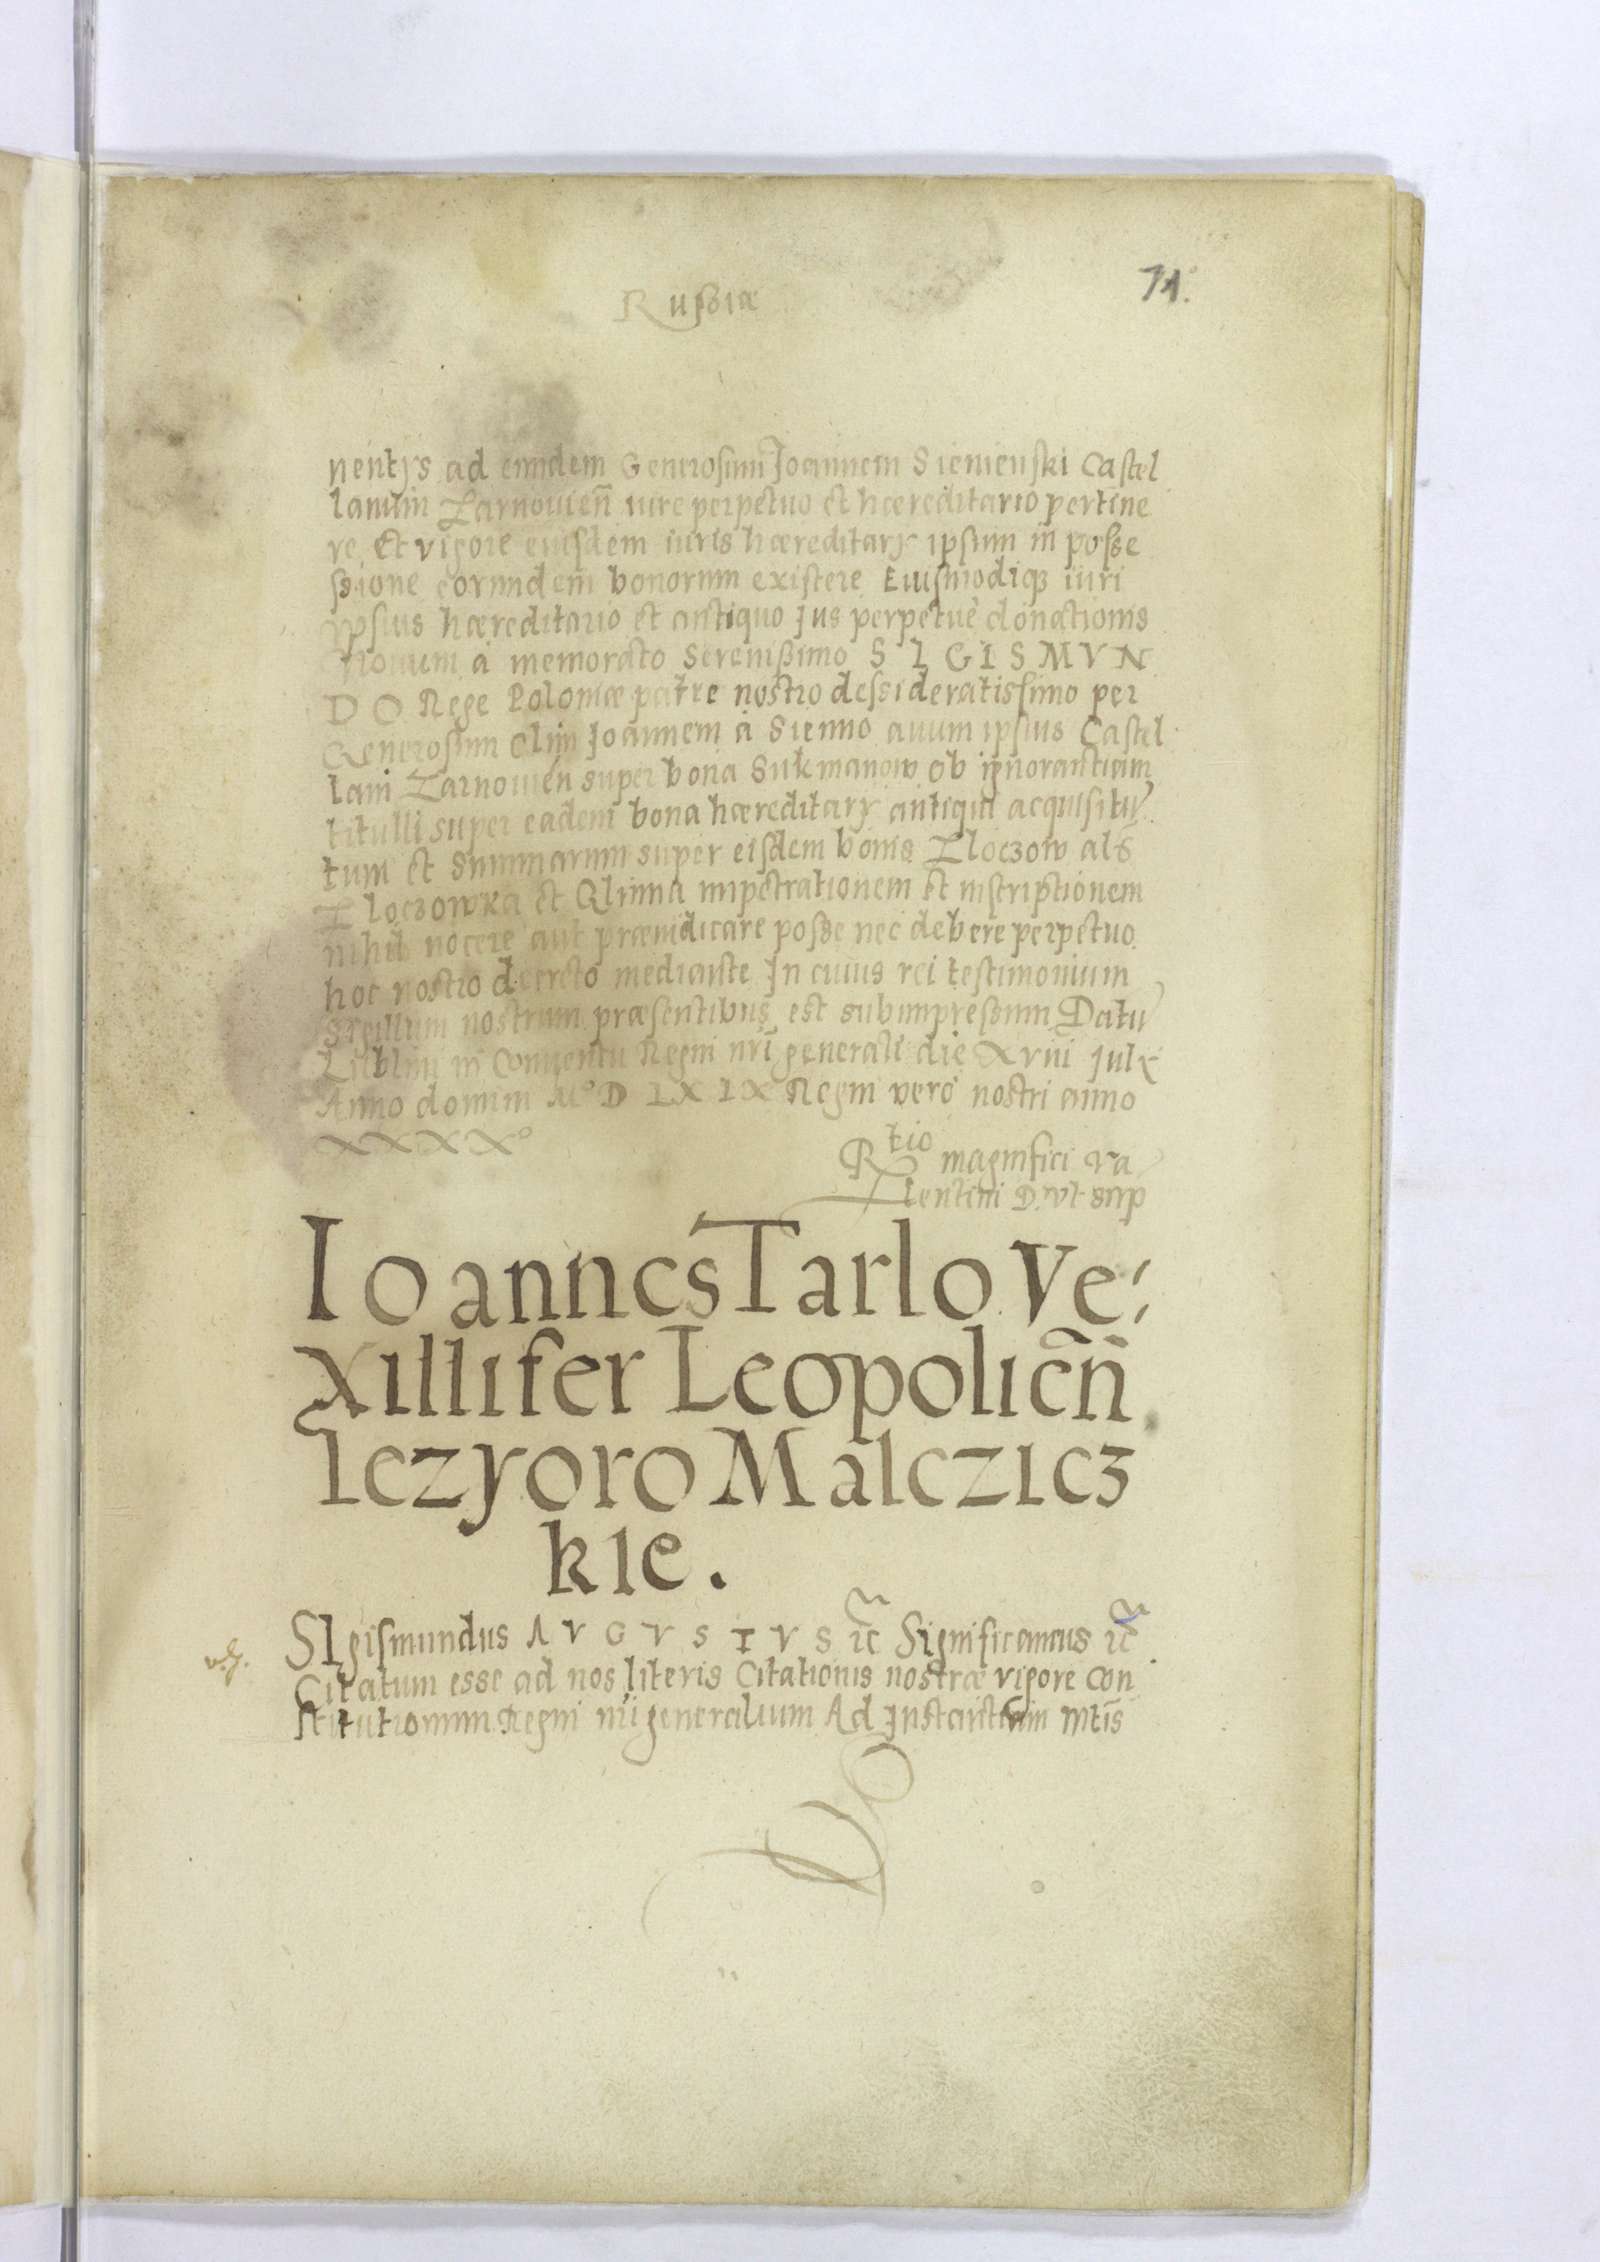 Russiæ
71.
nentijs ad eundem Generosum Joannem Sienienski Castel
lanum Zarnouien̄ iure perpetuo et hæreditario pertine
re Et vigore eiusdem iuris hæreditarÿ ipsum in posse
ssione eorundem bonorum existere Euismodiqȝ iuri
ipsius hæreditario et antiquo Jus perpetuè donationis
nouum à memorato Serenissimo S I G I S M V N
D O Rege Poloniæ patre nostro dessideratissimo per
Generosum olim Joannem à Sienno auum ipsius Castel
lani Zarnouień super bona Sukmanow ob ignorantiam
titulli super eadem bona hæreditarÿ antiqui acquisitū
tum et Summarum super eisdem bonis Zloczow als̄
Zloczowka et Glinna impetrationem et inscriptionem
nihil nocere aut præiudicare posse nec debere perpetuo
hoc nostro decreto mediante In cuius rei testimonium
Sigillum nostrum præsentibus est subimpressum Datū
Lublini in Conuentu Regni nrī generali die Xviii Julÿ
Anno domini M° D LXIX Regni verò nostri anno
XXXX°
Rtio magnifici Va
lentini D. vt sup
Ioannes Tarlo Ve:
xillifer Leopolien̄
Iezyoro Malczicz
kie.
v.g.
SIgismundus A V G V S T V S ic̄ Significamus ic̄
Citatum esse ad nos literis Citationis nostræ vigore Con
stitutionum Regni nrī generalium Ad Instantiam Mtis̄